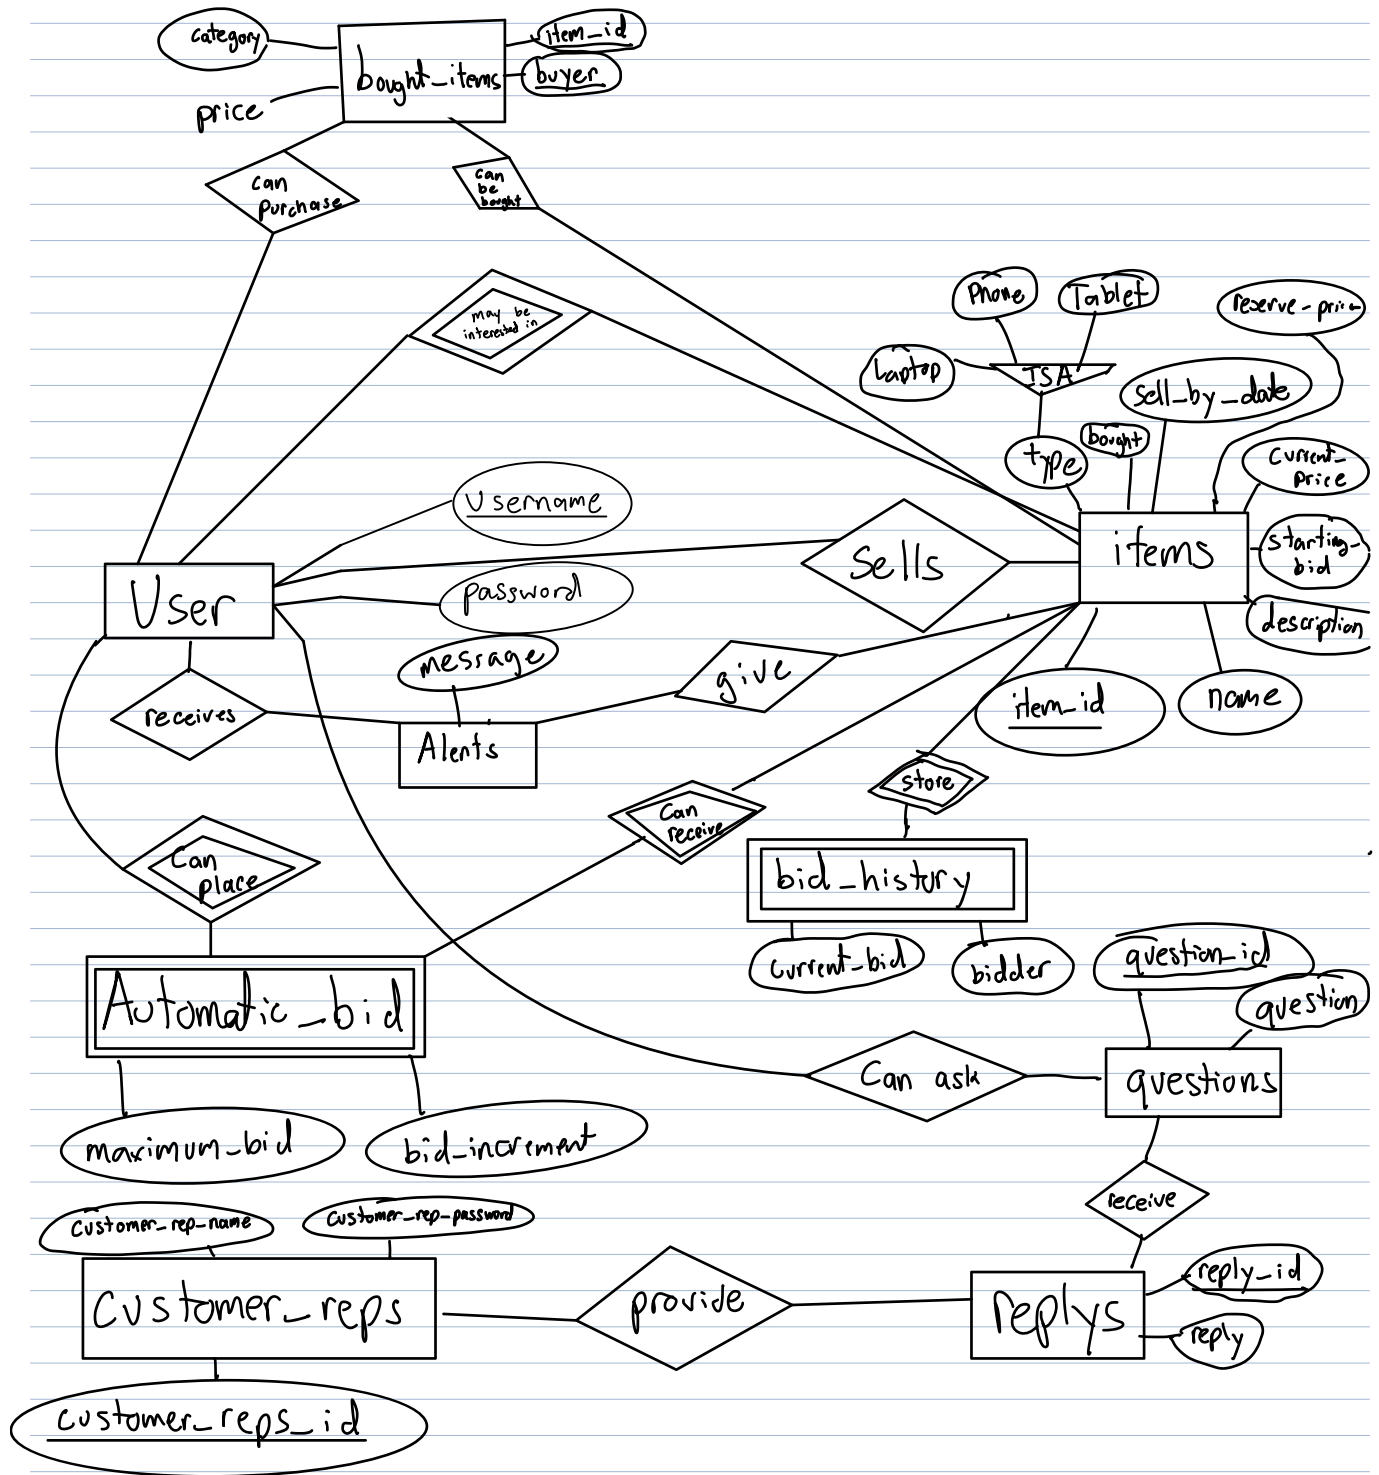 category
item_id
bought_items
buyer
price
can
purchase
can
be
bought
may be
interested in
Phone
Tablet
reserve-price
Laptop
ISA
sell_by_date
bought
type
current_
price
Username
Sells
items
starting_
bid
User
password
description
message
give
receives
item_id
name
Alerts
store
Can
receive
Can
place
bid_history
current_bid
bidder
question_id
question
Automatic_bid
Can ask
questions
maximum_bid
bid_increment
receive
customer_rep_name
customer_rep_password
customer_reps
provide
replys
reply_id
reply
customer_reps_id